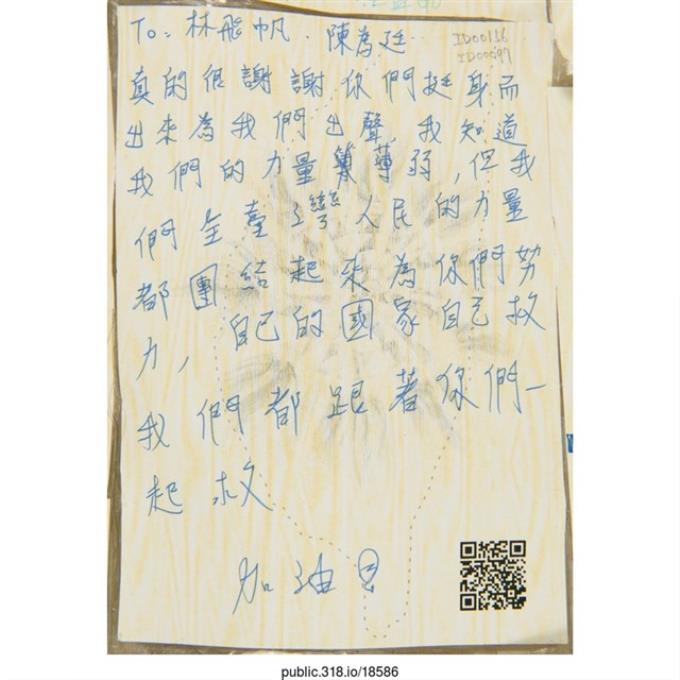 To: 林飛帆. 陳為廷
ID00116
ID00097
真的很謝謝你們挺身而
出來為我們出聲,我知道
我們的力量薄弱,但我
們全臺 人民的力量
都團結起來為你們努
力,自己的國家自己救
我們都跟著你們一
起救
加油!
public.318.io/18586